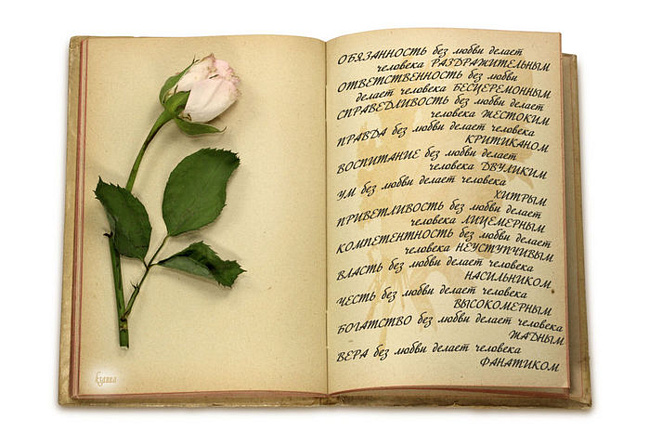 ОБЯЗАННОСТЬ без любви делает
человека РАЗДРАЖИТЕЛЬНЫМ
ОТВЕТСТВЕННОСТЬ без любви
делает человека БЕСЦЕРЕМОННЫМ
СПРАВЕДЛИВОСТЬ без любви делает
человека ЖЕСТОКИМ
ПРАВДА без любви делает человека
КРИТИКАНОМ
ВОСПИТАНИЕ без любви делает
человека ДВУЛИКИМ
УМ без любви делает человека
ХИТРЫМ
ПРИВЕТЛИВОСТЬ без любви делает
человека ЛИЦЕМЕРНЫМ
КОМПЕТЕНТНОСТЬ без любви делает
человека НЕУСТУПЧИВЫМ
ВЛАСТЬ без любви делает человека
НАСИЛЬНИКОМ
ЧЕСТЬ без любви делает человека
ВЫСОКОМЕРНЫМ
БОГАТСТВО без любви делает человека
ЖАДНЫМ
ВЕРА без любви делает человека
ФАНАТИКОМ